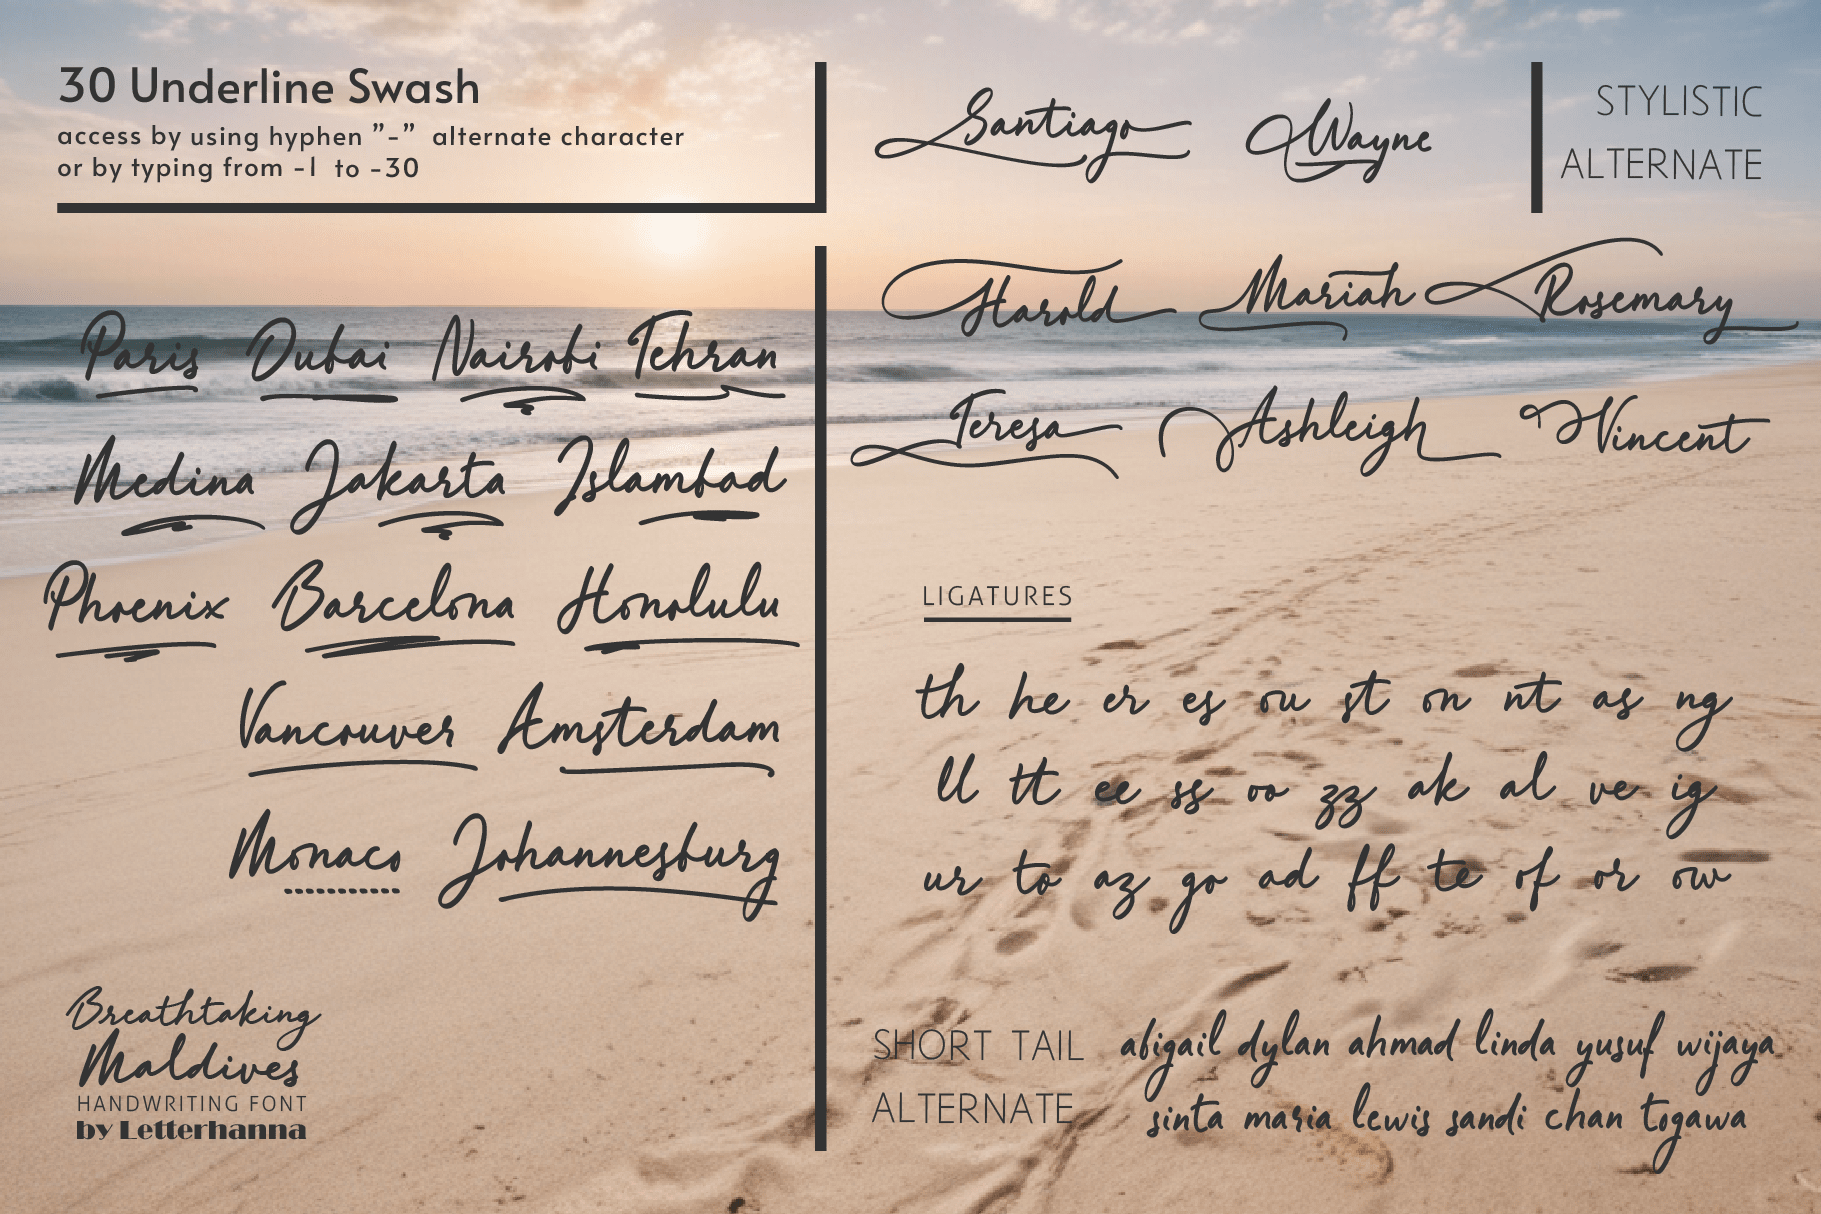 30 Underline Swash
access by using hyphen ”-” alternate character
or by typing from -1 to -30
Paris Dubai Nairobi Tehran
Medina Jakarta Islambad
Phoenix Barcelona Honolulu
Vancouver Amsterdam
Monaco Johannesburg
Breathtaking
Maldives
HANDWRITING FONT
by Letterhanna
Santiago Wayne
STYLISTIC
ALTERNATE
Harold Mariah Rosemary
Teresa Ashleigh Vincent
LIGATURES
th he er es ou st on nt as ng
ll tt ee ss oo zz ak al ve ig
ur to az go ad ff te of or ow
SHORT TAIL
ALTERNATE
abigail dylan ahmad linda yusuf wijaya
sinta maria lewis sandi chan togawa